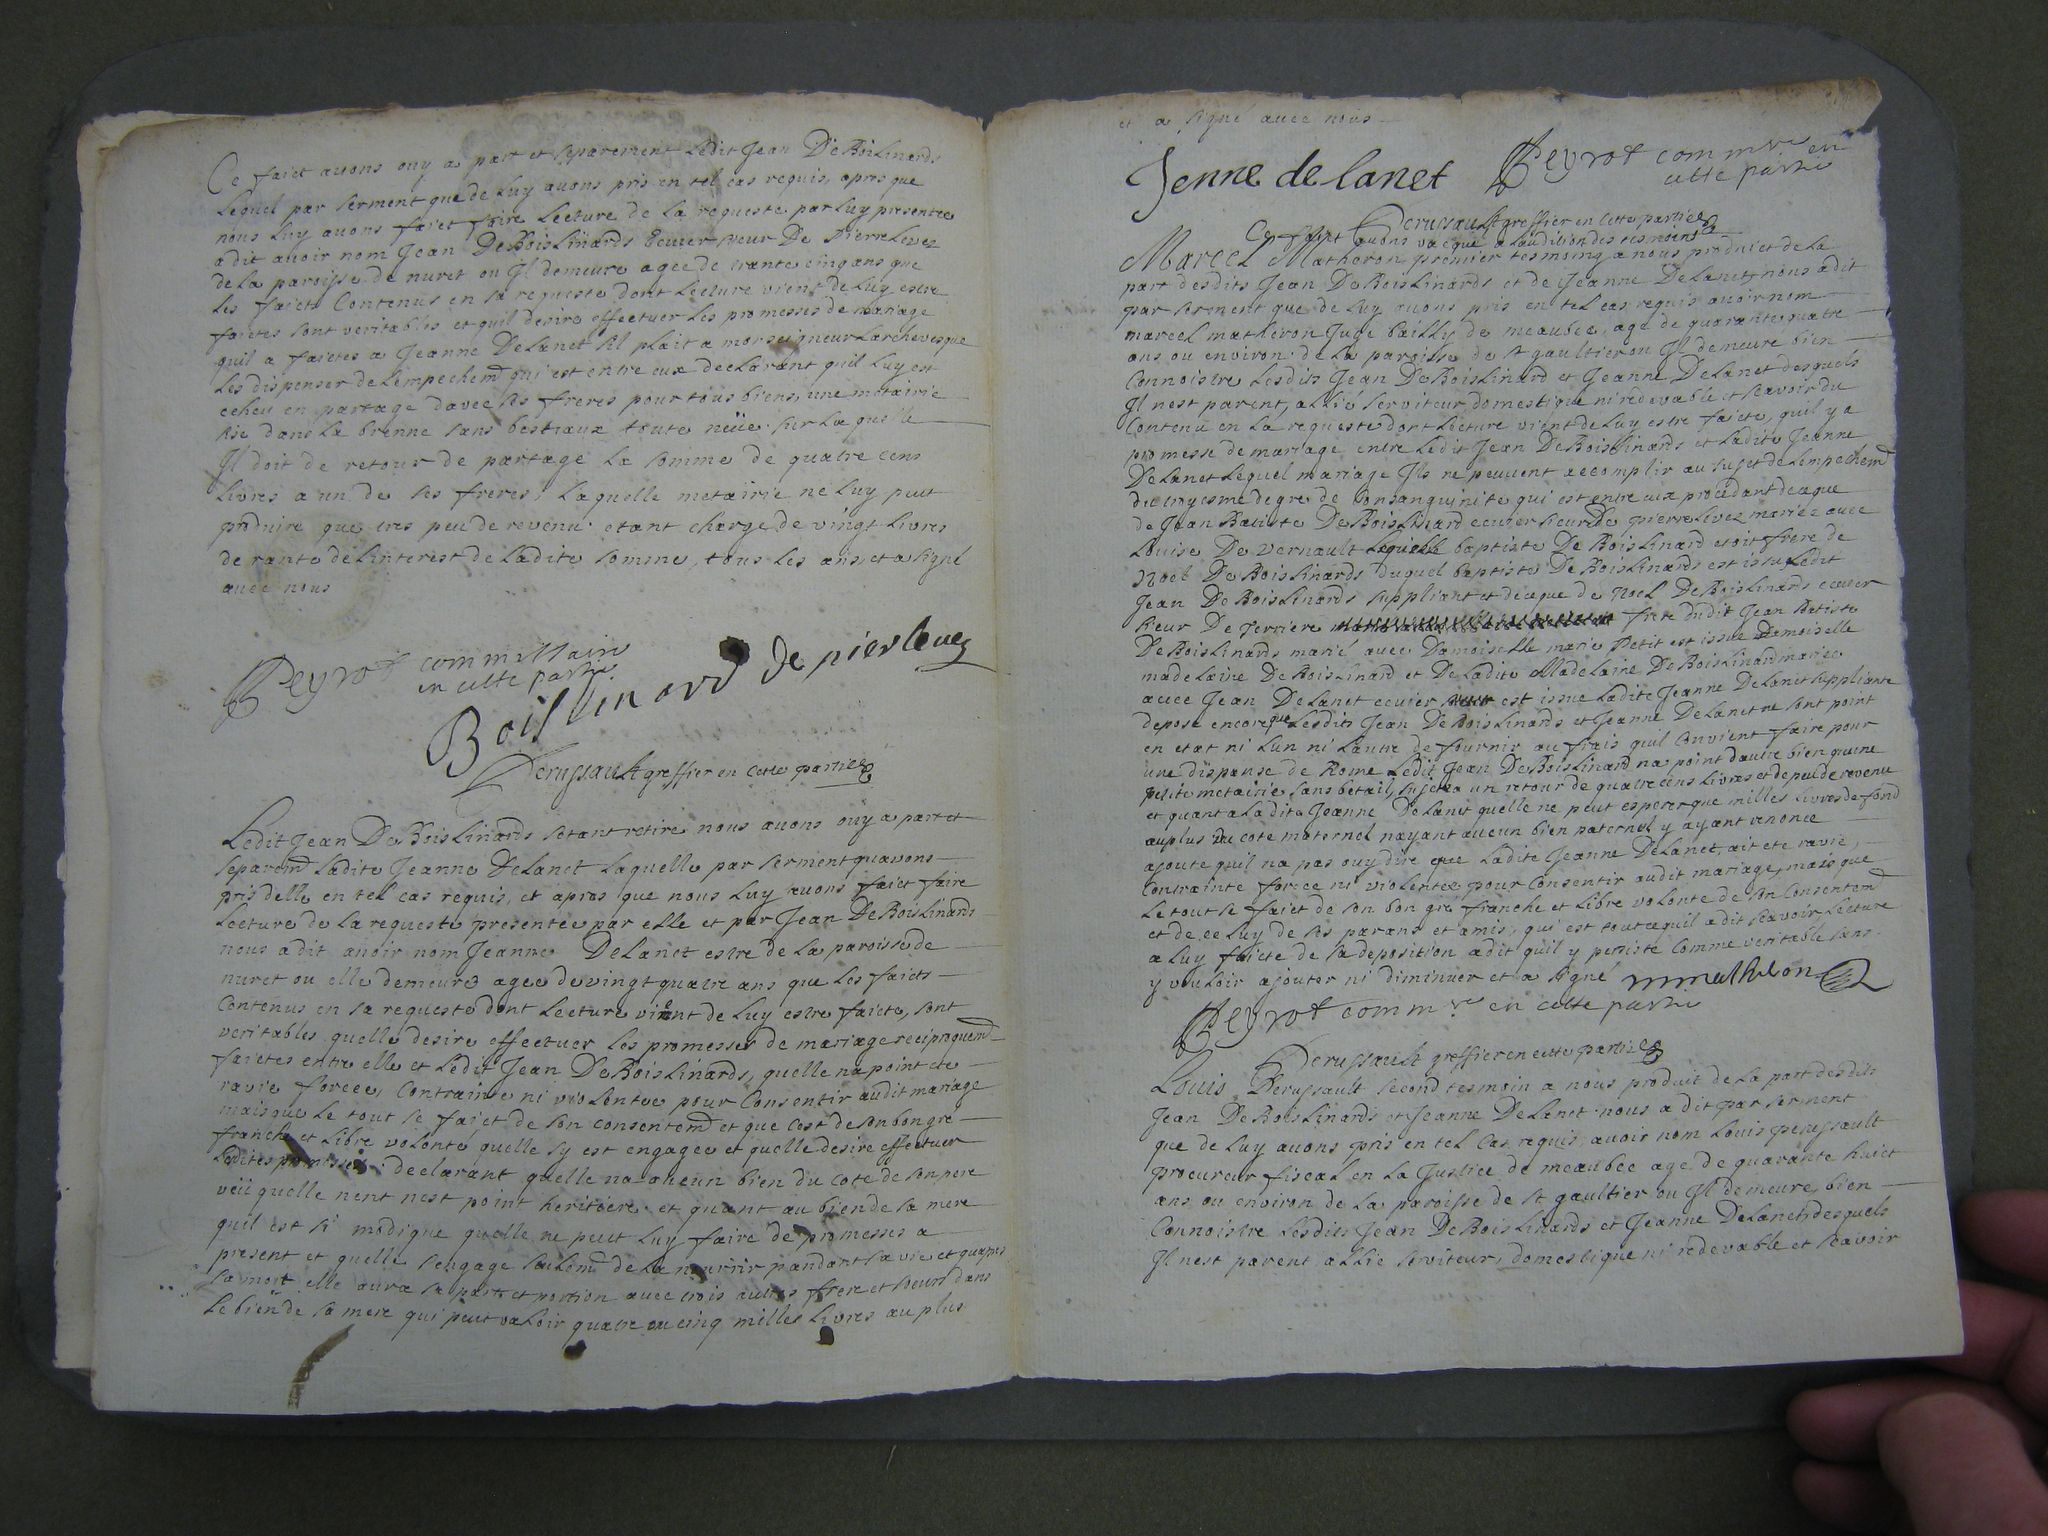 Ce faict avons ouy a part et separement Ledit Jean De Boislinards
Lequel par serment que de Luy avons pris en tel cas requis, apres que
nous Luy avons faict faire Lecture de La requeste par Luy presentee
a dit avoir nom Jean De Boislinards Ecuier sieur De Pierrelevez
de La paroisse de nuret ou Jl demeure agee de trante cinq ans que
Les faicts Contenus en sa requeste dont Lecture vient de Luy estre
faictes sont veritables et quil desire effectuer Les promesses de mariage
quil a faictes a Jeanne DeLanet sil plait a monseigneur Larchevesque
Les dispenser de Lempechemt qui est entre eux declarant quil Luy est
echeu en partage davec ses freres pour tous biens, une metairie
sise dans La brenne sans bestiaux toute nüe sur Laquelle
Jl doit de retour de partage La somme de quatre cens
Livres a un de ses freres, Laquelle metairie ne Luy peut
produire que tres peu de revenu etant charge de vingt Livres
de rante de Linterest de Ladite somme, tous Les ans, et a signé
avec nous
Peyrot commissaire
en cette partie
Boislinard de pierleuez
Perussault greffier en Cette partie
Ledit Jean De Boislinards setant retiré nous avons ouy a part et
separemt Ladite Jeanne DeLanet Laquelle par serment quavons
pris delle en tel cas requis, et apres que nous Luy avons faict faire
Lecture de La requeste presentee par elle et par Jean De Boislinards
nous a dit avoir nom Jeanne DeLanet estre de La paroisse de
nuret ou elle demeure agee de vingt quatre ans que Les faicts
Contenus en sa requeste dont Lecture vient de Luy estre faicte, sont
veritables quelle desire effectuer Les promesses de mariage reciproquemt
faictes entre elle et Ledit Jean De Boislinards, quelle na point ete
ravie forcee, Contrainte ni violentee pour Consentir audit mariage
mais que Le tout se faict de son consentemt et que Cest de son bon gre
franche et Libre volonte quelle sy est engagee et quelle desire effectuer
Lesdites promesses declarant quelle na aucun bien du cote de son pere
veü quelle nent nest point heritiere et quant au bien de sa mere
quil est si modique quelle ne peut Luy faire de promesses a
present et quelle sengage seulemt de La nourrir pandant sa vie et quapres
sa mort elle aura sa part et portion avec trois autres frere et soeurs dans
Le bien de sa mere qui peut valoir quatre ou cinq milles Livres au plus
et a signé avec nous
Jenne de lanet Peyrot commre en
cette partie
Perussault greffier en Cette partie
Ce faict avons vacque a Laudition des tesmoins
Marcel Matheron premier tesmoing a nous produict de La
part desdits Jean De Boislinards et de Jeanne DeLanet nous a dit
par serment que de Luy avons pris en tel cas requis avoir nom
marcel matheron Juge bailly de meaubec, age de quarante quatre
ans ou environ de La paroisse de st gaultier ou Jl demeure bien
Connoistre Lesdits Jean De Boislinard et Jeanne DeLanet desquels
Jl nest parent, allié serviteur domestique ni redevable et scavoir du
Contenu en La requeste dont Lecture vient de Luy estre faicte, quil y a
promesse de mariage entre Ledit Jean De Boislinards et Ladite Jeanne
DeLanet Lequel mariage Jls ne peuvent accomplir au sujet de Lempechemt
du troyesme degre de Consanguinite qui est entre eux procedant de ce que
de Jean Batiste De Boislinard ecuier sieur De pierrelevez mariee avec
Louise De vernault Lequelle baptiste De Boislinard etoit frere de
Noel De Boislinards duquel baptiste De Boislinards est issu Ledit
Jean De Boislinards suppliant et de ce que de Noel De Boislinards ecuier
sieur De ferriere frere dudit Jean Batiste
De Boislinards marié avec Damoiselle marie Petit est issue Demoiselle
madelaine De Boislinard et De Ladite Madelaine De Boislinard mariee
avec Jean DeLanet ecuier est issue Ladite Jeanne DeLanet suppliante
depose encore que Lesdits Jean De Boislinards et Jeanne DeLanet ne sont point
en etat ni Lun ni Lautre de fournir au frais quil Convient faire pour
une dispanse de Rome Ledit Jean De Boislinard na point dautre bien quune
petite metairie sans betail, sujette a un retour de quatre cens Livres et de peu de revenu
et quant a Ladite Jeanne DeLanet quelle ne peut esperer que milles Livres de fond
au plus du cote maternel nayant aucun bien paternel y ayant renonce
ajoute quil na pas ouy dire que Ladite Jeanne DeLanet, ait ete ravie,
Contrainte forcee ni violentee pour Consentir audit mariage, mais que
Le tout se faict de son bon gre franche et Libre volonte de son Consentemt
et de ce Luy de ses parans et amis, qui est tout ce quil a dit scavoir Lecture
a Luy faicte de sa deposition a dit quil y persiste Comme veritable sans
y vouloir ajouter ni diminuer et a signé mmatheron
Peyrot commre en cette partie
Perussault greffier en cette partie
Louis Perussault second tesmoin a nous produit de La part desdits
Jean De Boislinards et Jeanne DeLanet nous a dit par serment
que de Luy avons pris en tel Cas requis, avoir nom Louis perussault
procureur fiscal en La Justice de meaubec age de quarante huict
ans ou environ de La paroisse de st gaultier ou Jl demeure, bien
Connoistre Lesdits Jean De Boislinards et Jeanne DeLanet, desquels
Jl nest parent allie serviteur, domestique ni redevable et scavoir